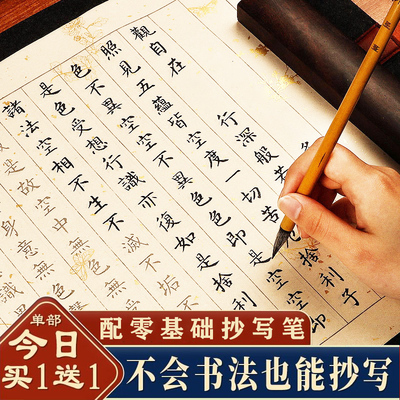 觀自在 行深般若
照見五蘊皆空度一切苦 捨利子
色不異空空不異色色即是空空即
是色受想行識亦復如是捨利
諸法空相不生不滅不垢不
是故空中無色無
身意無
單部
今日
买1送1
配零基础抄写笔
不会书法也能抄写